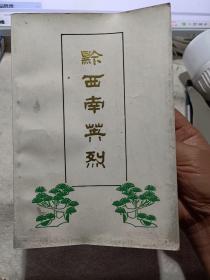 黔西南英烈